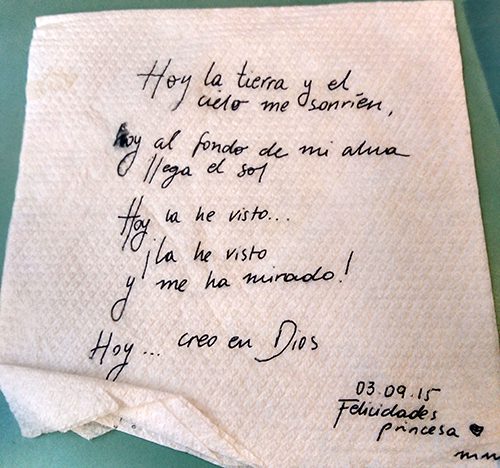 Hoy la tierra y el
cielo me sonríen,
hoy al fondo de mi alma
llega el sol
Hoy la he visto...
¡la he visto
y me ha mirado!
Hoy... creo en Dios
03.09.15
Felicidades
princesa ♥